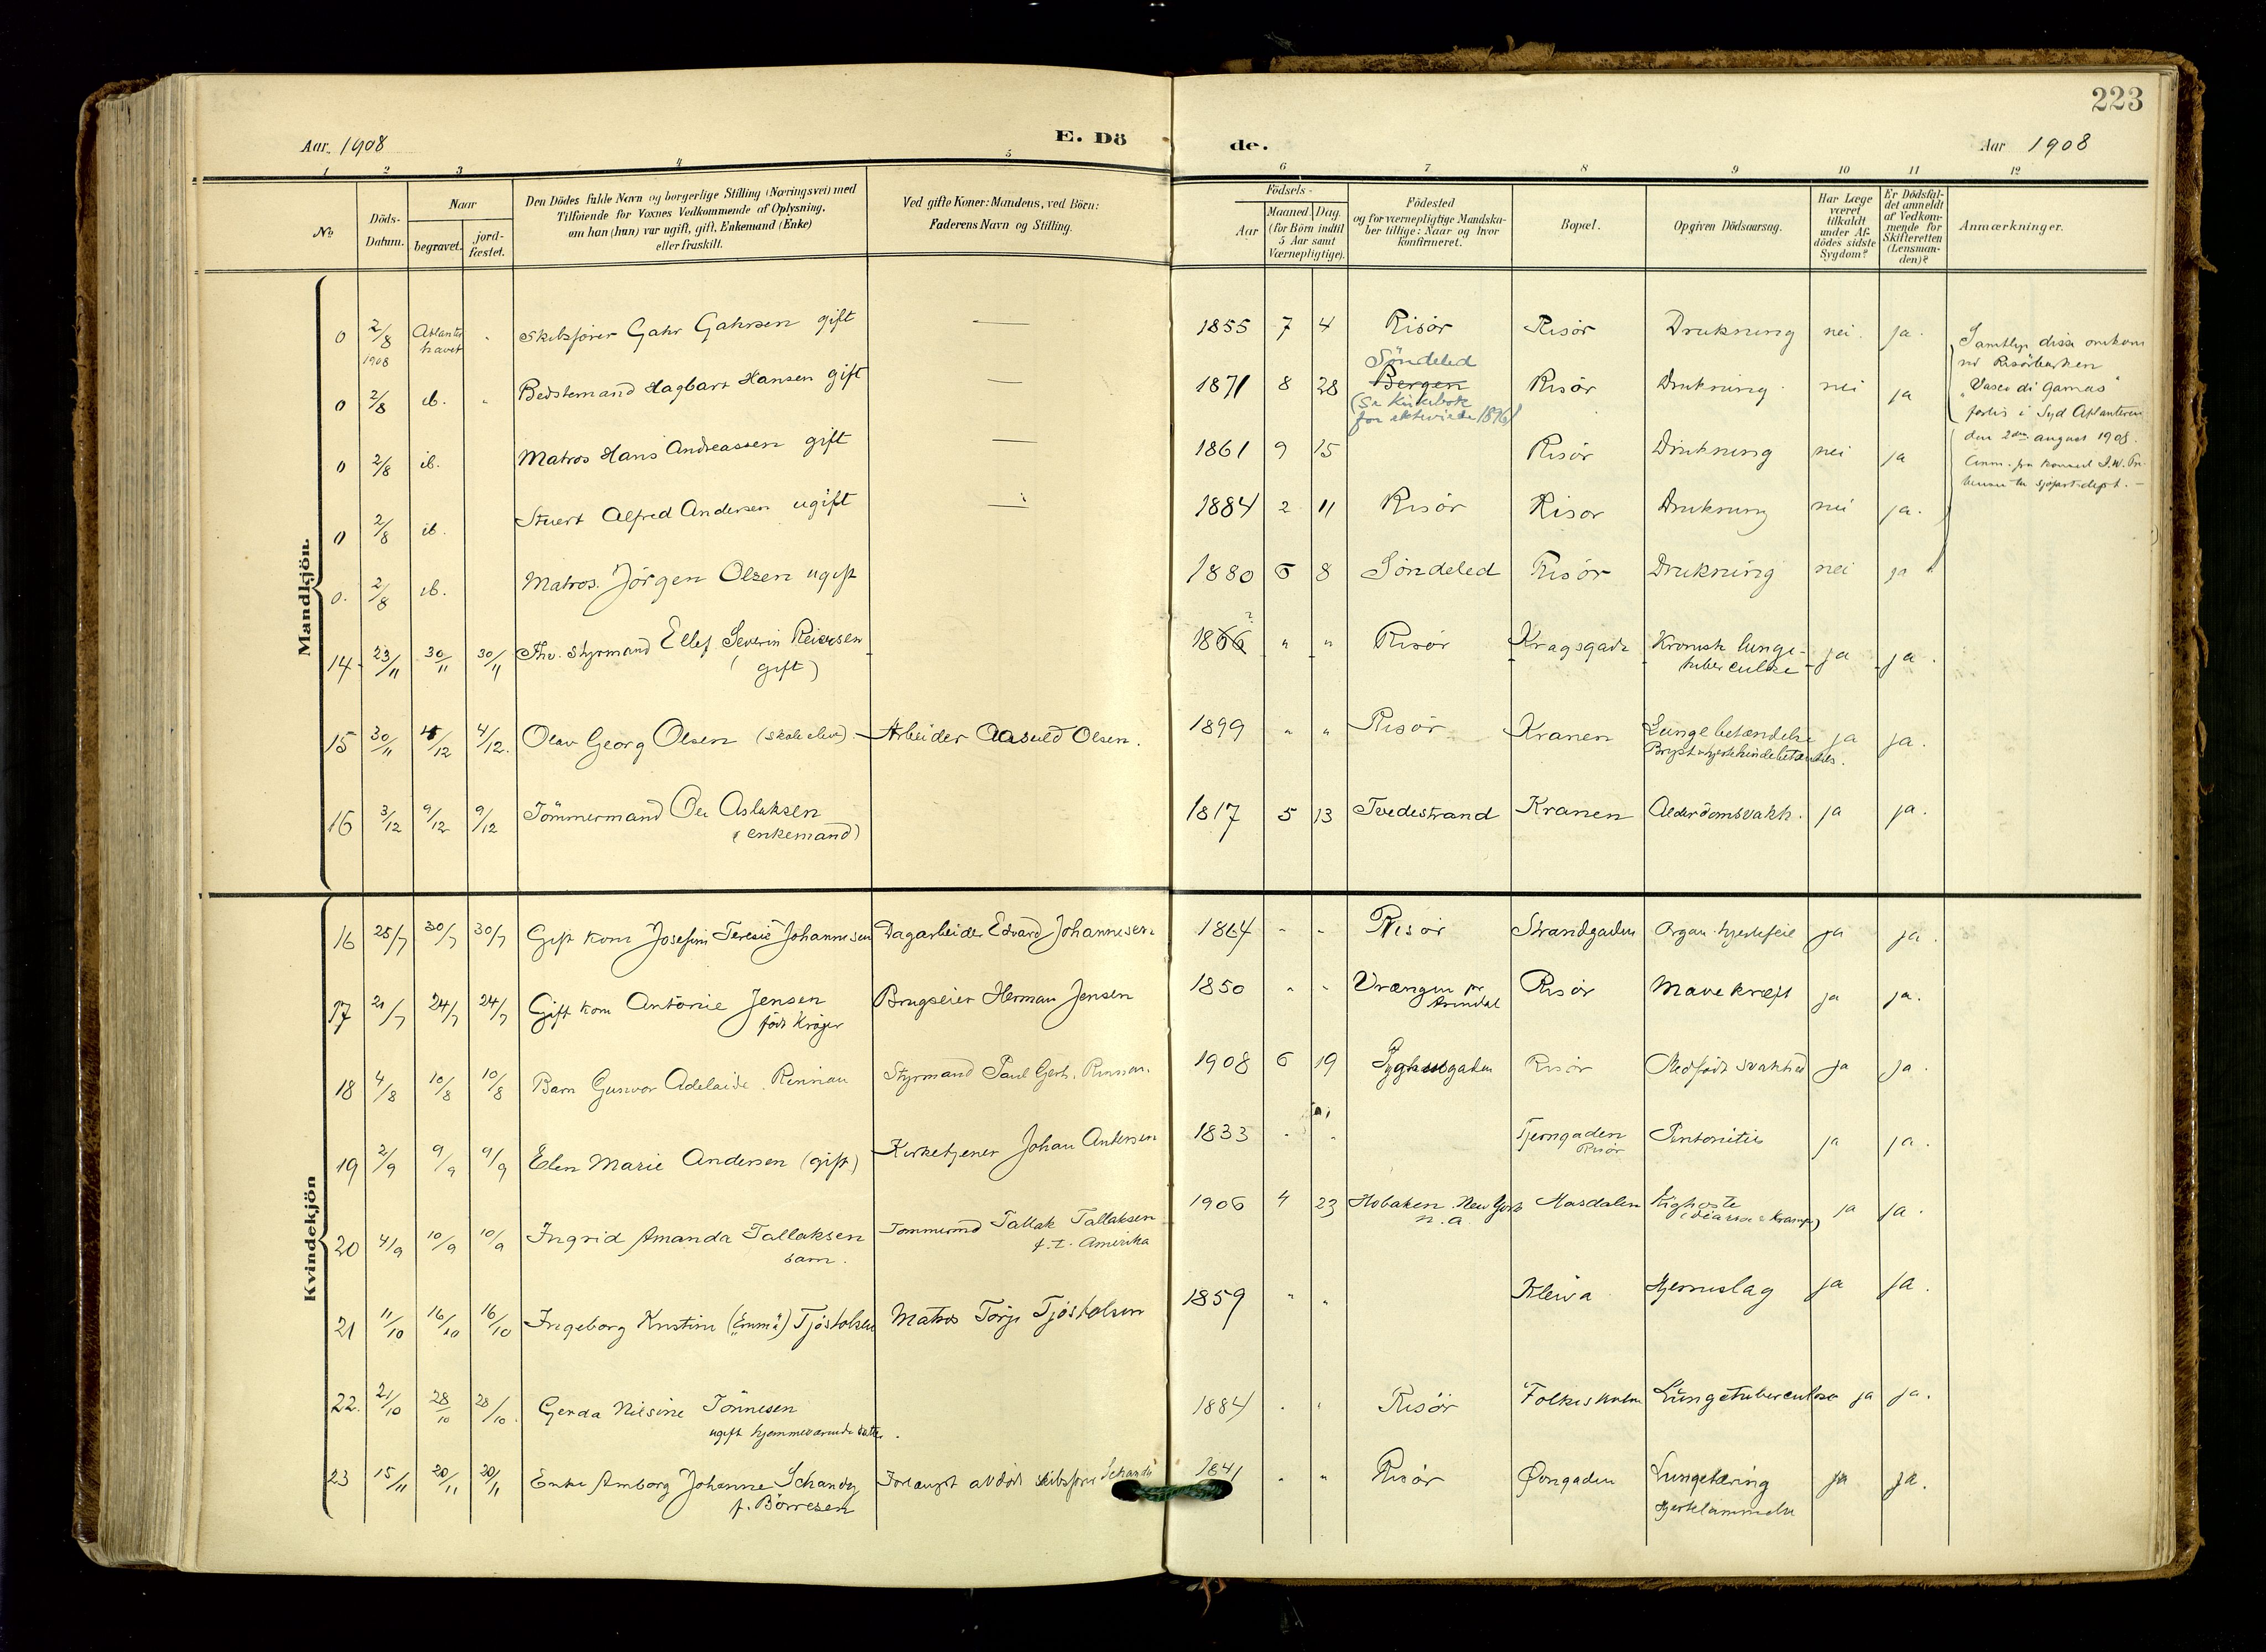 223
Aar 1908
E. Dö
de.
Aar 1908
1 2 3 4 5 6 7 8 9 10 11 12
No.
Döds-Datum.
Naar
begravet.
jord-fæstet.
Den Dödes fulde Navn og borgerlige Stilling (Næringsvei) med
Tilföiende for Voxnes Vedkommende af Oplysning,
om han (hun) var ugift, gift, Enkemand (Enke)
eller fraskilt.
Ved gifte Koner: Mandens, ved Börn:
Faderens Navn og Stilling.
Födsels-
Aar
Maaned. Dag.
(for Börn indtil
5 Aar samt
Værnepligtige).
Födested
og for værnepligtige Mandska-
ber tillige: Naar og hvor
konfirmeret.
Bopæl.
Opgiven Dödsaarsag.
Har Læge
været
tilkaldt
under Af-
dödes sidste
Sygdom?
Er Dödsfal-
det anmeldt
af Vedkom-
mende for
Skifteretten
(Lensman-
den)?
Anmærkninger.
Mandkjön.
0 2/8 1908 Atlanter havet " Skibsfører Gahr Gahrsen gift — 1855 7 4 Risör Risör Drukning nei. ja.
0 2/8 ib. " Bedstemand Hagbart Hansen gift — 1871 8 28 Söndeled Bergen Risör Drukning. nei ja
(Se Kirkebok
for ekteviede 1896)
0 2/8 ib. Matros Hans Andreassen gift — 1861 9 15 Risör Drukning nei ja
0 2/8 ib. Stuert Alfred Andersen ugift — 1884 2 11 Risör Risör Drukning nei ja.
0. 2/8 ib. Matros. Jörgen Olsen ugift 1880 6 8 Söndeled Risör Drukning nei ja
Samtlige disse omkom
ved Risörbarken
"Vasco di Gamas"
forlis i Syd Atlanteren
den 2den august 1908.
14 23/11 30/11 30/11 Fhv. Styrmand Ellef Severin Reiersen
(gift)
1866 ? " " Risör Kragsgade Kronisk lunge-
tuberculose ja ja.
15 30/11 4/12 4/12. Olav Georg Olsen (skoleelev). Arbeider Aasuld Olsen. 1899 " " Risör Kranen Lungebetændelse ja ja.
16 3/12 9/12 9/12 Tömmermand Ole Aslaksen
(enkemand)
1817 5 13 Tvedestrand Kranen Alderdomsvakh. ja ja.
Kvindekjön
16 25/7 30/7 30/7 Gift kone Josefine Teresie Johannesen Dagarbeider Edvard Johannesen. 1864 " " Risör Strandgaden Organ. hjertefeil ja ja.
17 21/7 24/7 24/7 Gift kone Antonie Jensen
født Kröger
Brugseier Herman Jensen 1850 " " Vrængen pr
Arendal
Risör Mavekræft ja ja.
18 4/8 10/8 10/8 Barn Gunvor Adelaide Rennan Styrmand Paul Gerh. Rennan. 1908 6 19 Risör Medfødt svakhed ja ja.
19 2/9 9/9 9/9 Elen Marie Andersen (gift) Kirketjener Johan Andersen 1833 " " Tjerngaden
Risör
Peritonitis ja ja.
20 4/9 10/9 10/9 Ingrid Amanda Tallaksen
barn.
Tömmermd Tallak Tallaksen
f. t. Amerika
1906 4 23 Hoboken. New York
N. A.
Masdalen Kighoste
ja ja.
21 11/10 16/10 16/10 Ingeborg Kristine ("Emma") Tjöstolsen Matros Terje Tjöstolsen 1859 " " Kleiva Hjerneslag ja ja.
22. 21/10 28/10 28/10. Gerda Nilsine Tönnesen
ugift hjemmeværende datter.
1884 " " Risör Folkets holm Lungetuberculose ja ja.
23 15/11 20/11 20/11 Enke Amborg Johanne Schandy
f. Börresen
Forlængst avdöd skibsfører Schandy 1841 " " Risör Øvregaden Lungetæring
Hjertelammelse
ja ja.